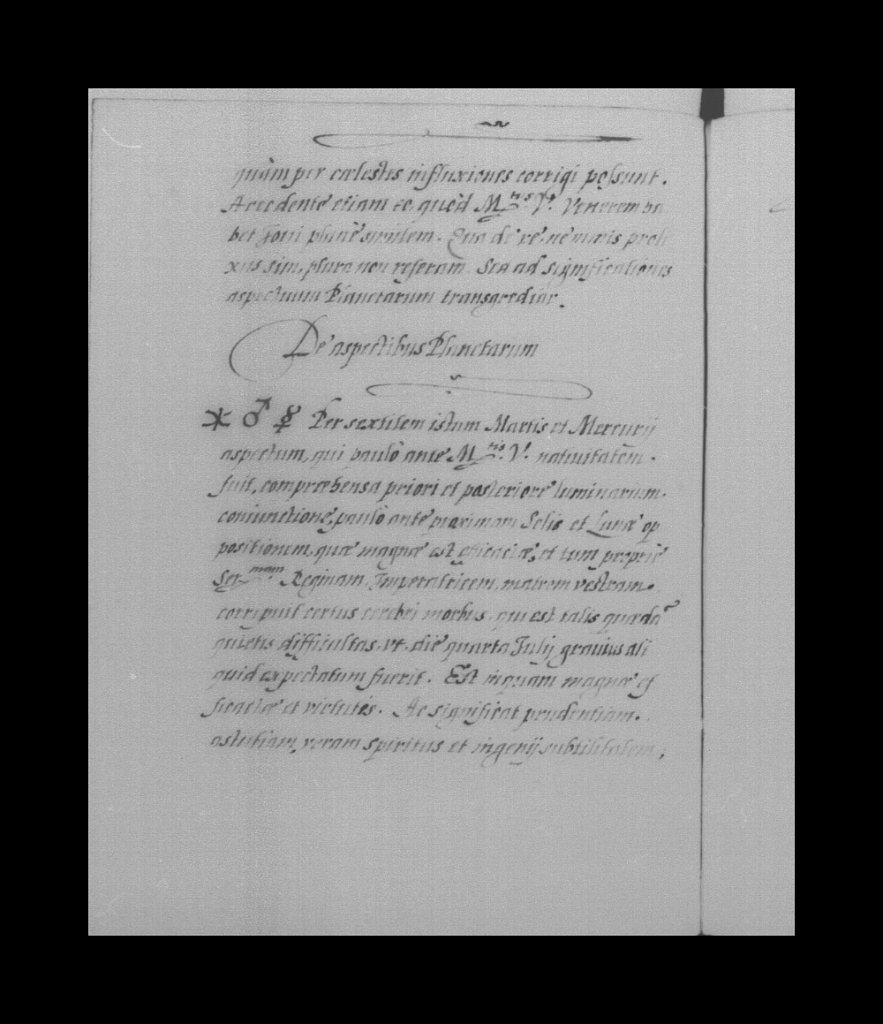 quàm per cœlestes influxiones corrigi possunt.
Accedente etiam eo quòd M.tis V.æ Venerem ha
bet Joui planè similem. Qua de re, ne nimis proli
xus sim, plura non referam. Sed ad significationes
aspectuum Planetarum transgrediar.
De aspectibus Planetarum
⚹ ♂ ☿ Per sextilem istum Martis et Mercurij
aspectum, qui paulò ante M.tis V.æ natiuitatem
fuit, comprehensa priori et posteriore luminarium
coniunctione, paulò ante proximam Solis et Lunæ op
positionem, quæ magnæ est efficaciæ, et tum propriè
Ser.mam Reginam, Imperatricem, matrem vestram
corripuit certus cerebri morbus, qui est talis quædã
quietis difficultas, vt die quarta Julij grauius ali
quid expectatum fuerit. Est inquam magnæ ef
ficaciæ et virtutis. Ac significat prudentiam.
astutiam, veram spiritus et ingenij subtilitatem,